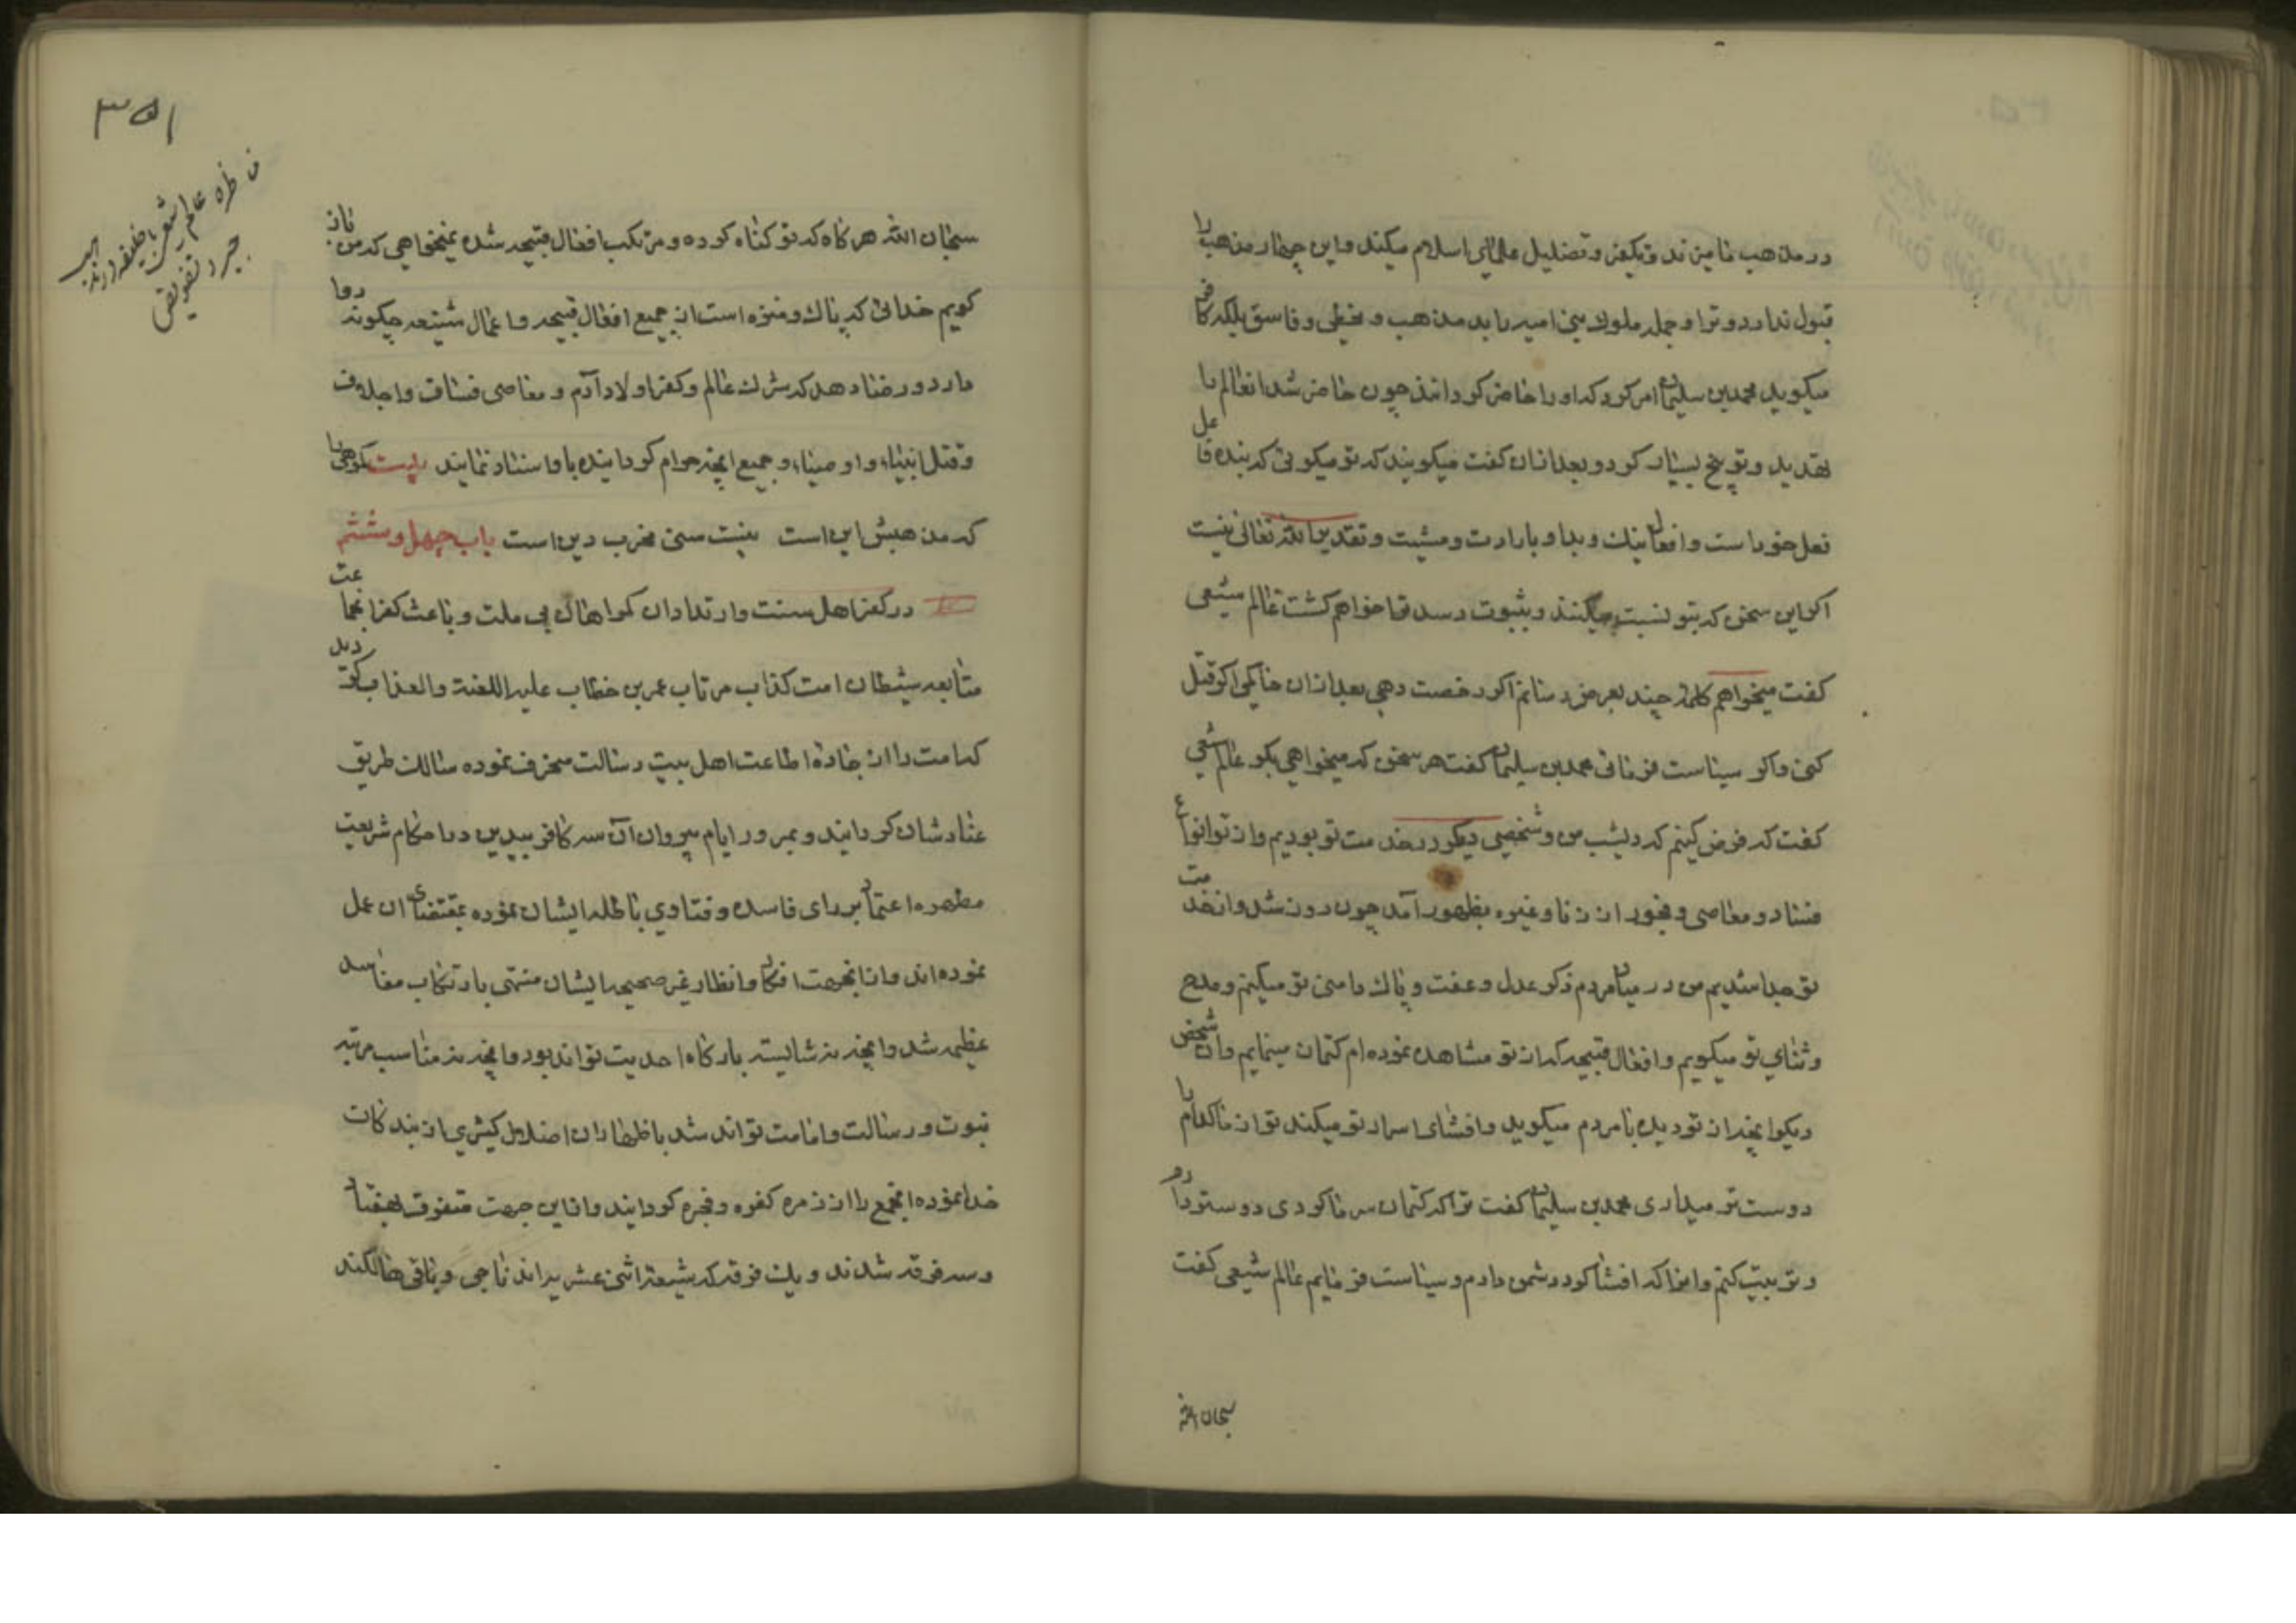 در مذهب ما میزند و تکفیر و تضلیل علمای اسلام میکند و این چهار مذهب را
قبول ندارد و ترا و جمله ملوک بنی امیه را بد مذهب و مخطی و فاسق بلکه کافر
میگوید محمد بن سلیمان امر کرد که او را حاضر گردانند چون حاضر شد انعالم را
تهدید و توبیخ بسیار کرد و بعد ازان گفت میگویند که تو میگوئی که بنده فاعل
فعل خود است و افعال نیک و بد او بارادت و مشیت و تقدیر الله تعالی نیست
اگر این سخن که بتو نسبت میکنند و بثبوت رسد ترا خواهم کشت عالم شیعی
گفت میخواهم کلمه چند بعرض رسانم اگر رخصت دهی بعد ازان حاکمی اگر قتل
کنی و اگر سیاست فرمائی محمد بن سلیمان گفت هر سخن که میخواهی بگو عالم شیعی
گفت که فرض کنیم که دیشب من و شخصی دیگر در خدمت تو بودیم و از تو انواع
فساد و معاصی و فجور از زنا و غیره بظهور آمد چون روز شد و از خدمت
تو جدا شدیم من در میان مردم ذکر عدل و عفت و پاک دامنی تو میکنم و مدح
و ثنای تو میگویم و افعال قبیحه که از تو مشاهده نموده ام کتمان مینمایم و ان شخص
دیگر انچه از تو دیده با مردم میگوید و افشای اسرار تو میکند تو از ما کدام را
دوست تر میداری محمد بن سلیمان گفت ترا که کتمان سر ما کردی دوستر دارم
و تربیت کنم و انرا که افشا کرد دشمن دارم و سیاست فرمایم عالم شیعی گفت
سبحان الله
۳۵۱
مناظره عالم شیعی با خلیفه در مذهب
جبر و تفویض
سبحان الله هر گاه که تو گناه کرده و مرتکب افعال قبیحه شده نمیخواهی که من باز
گویم خدائی که پاک و منزه است از جمیع افعال قبیحه و اعمال شنیعه چگونه روا
دارد و رضا دهد که شرک عالم و کفر اولاد آدم و معاصی فساق و اجلاف
و قتل انبیاء و اوصیاء و جمیع انچه حرام گردانیده باو اسناد نمایند بیت
که مذهبش این است نیست سنی مخرب دین است باب چهل و ششم
در کفر اهل سنت و ارتداد ان گمراهان بی ملت و باعث کفر انجماعت
متابعه شیطان امت کذاب مرتاب عمر بن خطاب علیه اللعنة والعذاب گردید
که امت را از جاده اطاعت اهل بیت رسالت منحرف نموده سالک طریق
عنادشان گردانید و بمرور ایام پیروان آن سه کافر بیدین در احکام شریعت
مطهره اعتماد بر رای فاسده و فتاوی باطله ایشان نموده بمقتضای ان عمل
نموده اند و از انجهت افکار و انظار غیر صحیحه ایشان منتهی بارتکاب مفاسد
عظیمه شد و انچه نه شایسته بارگاه احدیت تواند بود و انچه نه مناسب مرتبه
نبوت و رسالت و امامت تواند شد باظهار ان اضلال کثیری از بندگان
خدا نموده انجمع را از زمره کفره و فجره گردانید و از این جهت متفرق بهفتاد
و سه فرقه شدند و یک فرقه که شیعه اثنی عشریه اند ناجی و باقی هالکند